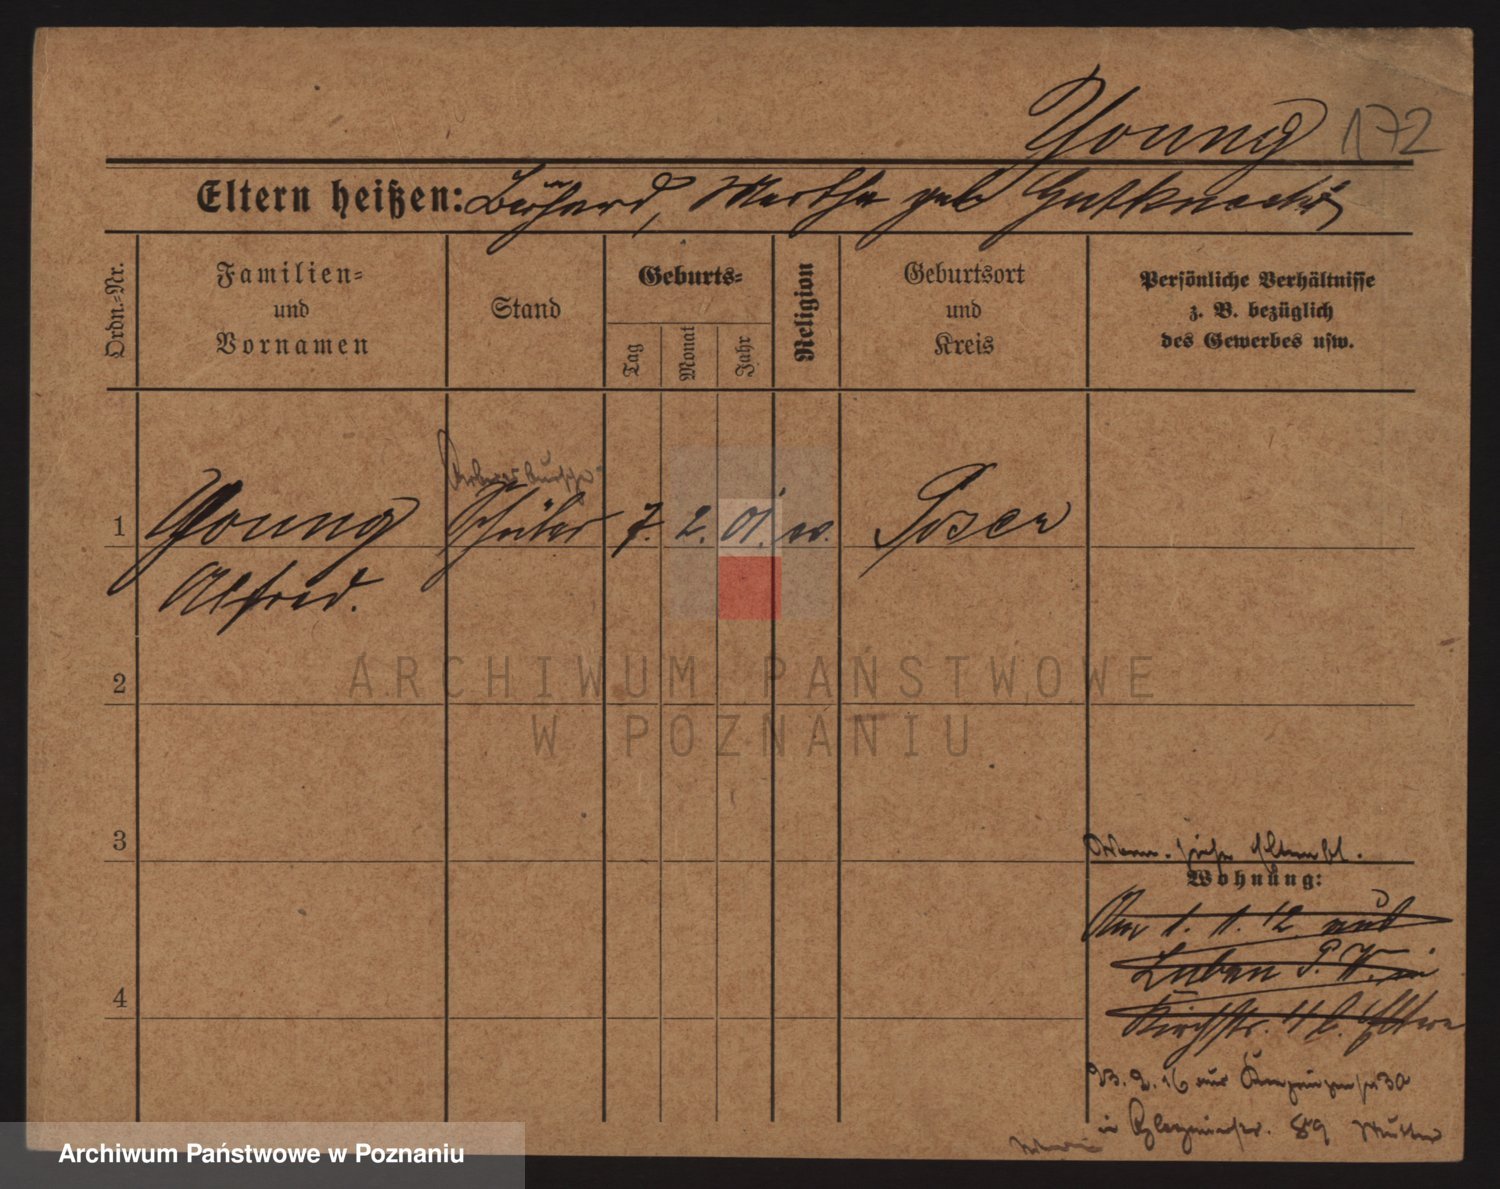 Young 172
Eltern heißen: Burchard, Martha geb Gutknecht
Ordn.=Nr.
Familien=
und
Vornamen
Stand
Geburts=
Tag
Monat
Jahr
Religion
Geburtsort
und
Kreis
Persönliche Verhältnisse
z. B. bezüglich
des Gewerbes usw.
Arbeitsbursche
1 Young Schüler 7. 2. 01. ev. Posen
Alfred.
2
ARCHIWUM PAŃSTWOWE
W POZNANIU
3
Wohnung:
Am 1. 11. 12 aus
Luban P. W. in
4
Kirchstr. 11 b. Eltern
23. 2. 16 aus 30
in 89 Mutter
Archiwum Państwowe w Poznaniu